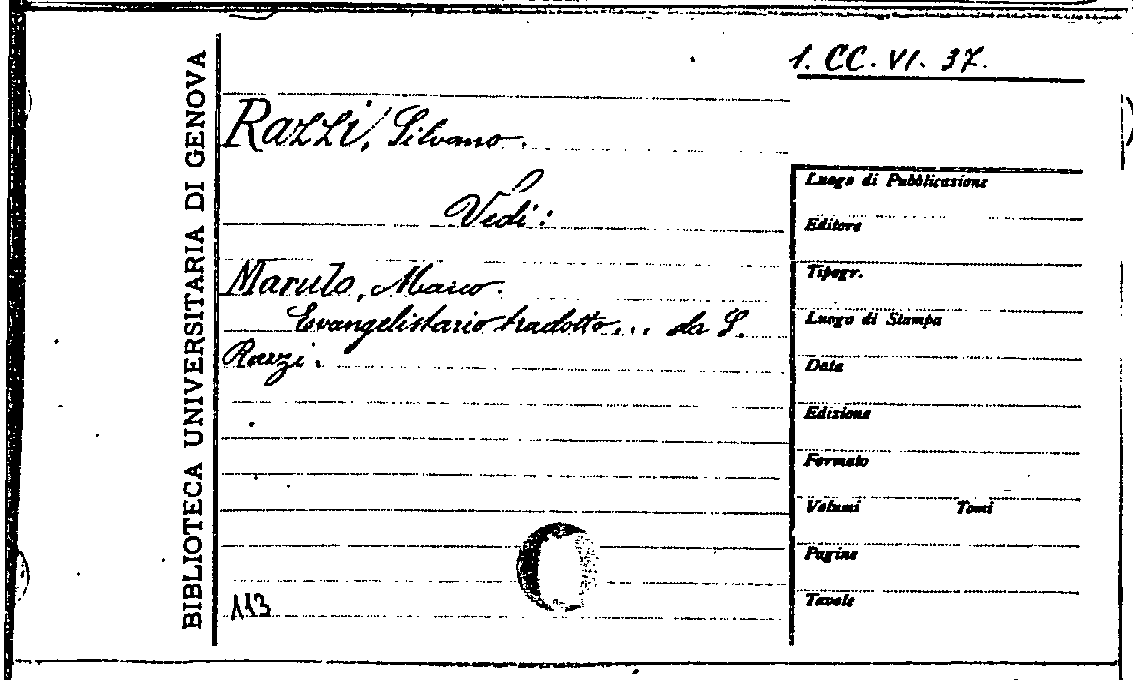 1. CC. VI. 37.
BIBLIOTECA UNIVERSITARIA DI GENOVA
Razzi, Silvano.
Vedi:
Marulo, Marco.
Evangelistario tradotto... da S.
Razzi.
113
Luogo di Pubblicazione
Editore
Tipogr.
Luogo di Stampa
Data
Edizione
Formato
Volumi Tomi
Pagine
Tavole